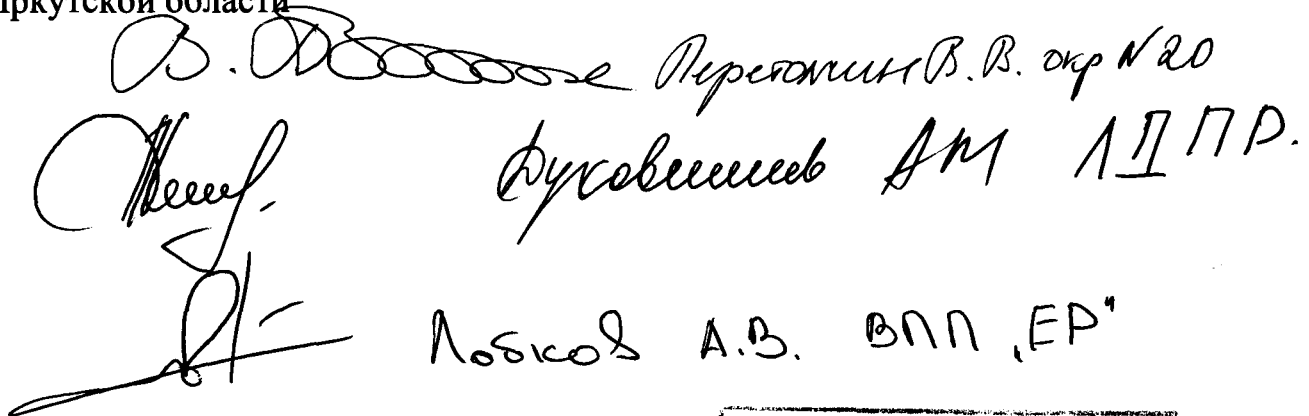 Иркутской области
Перетолчин В.В. окр N 20
Духовников АМ ЛДПР.
Лобков А.В. ВПП „ЕР"